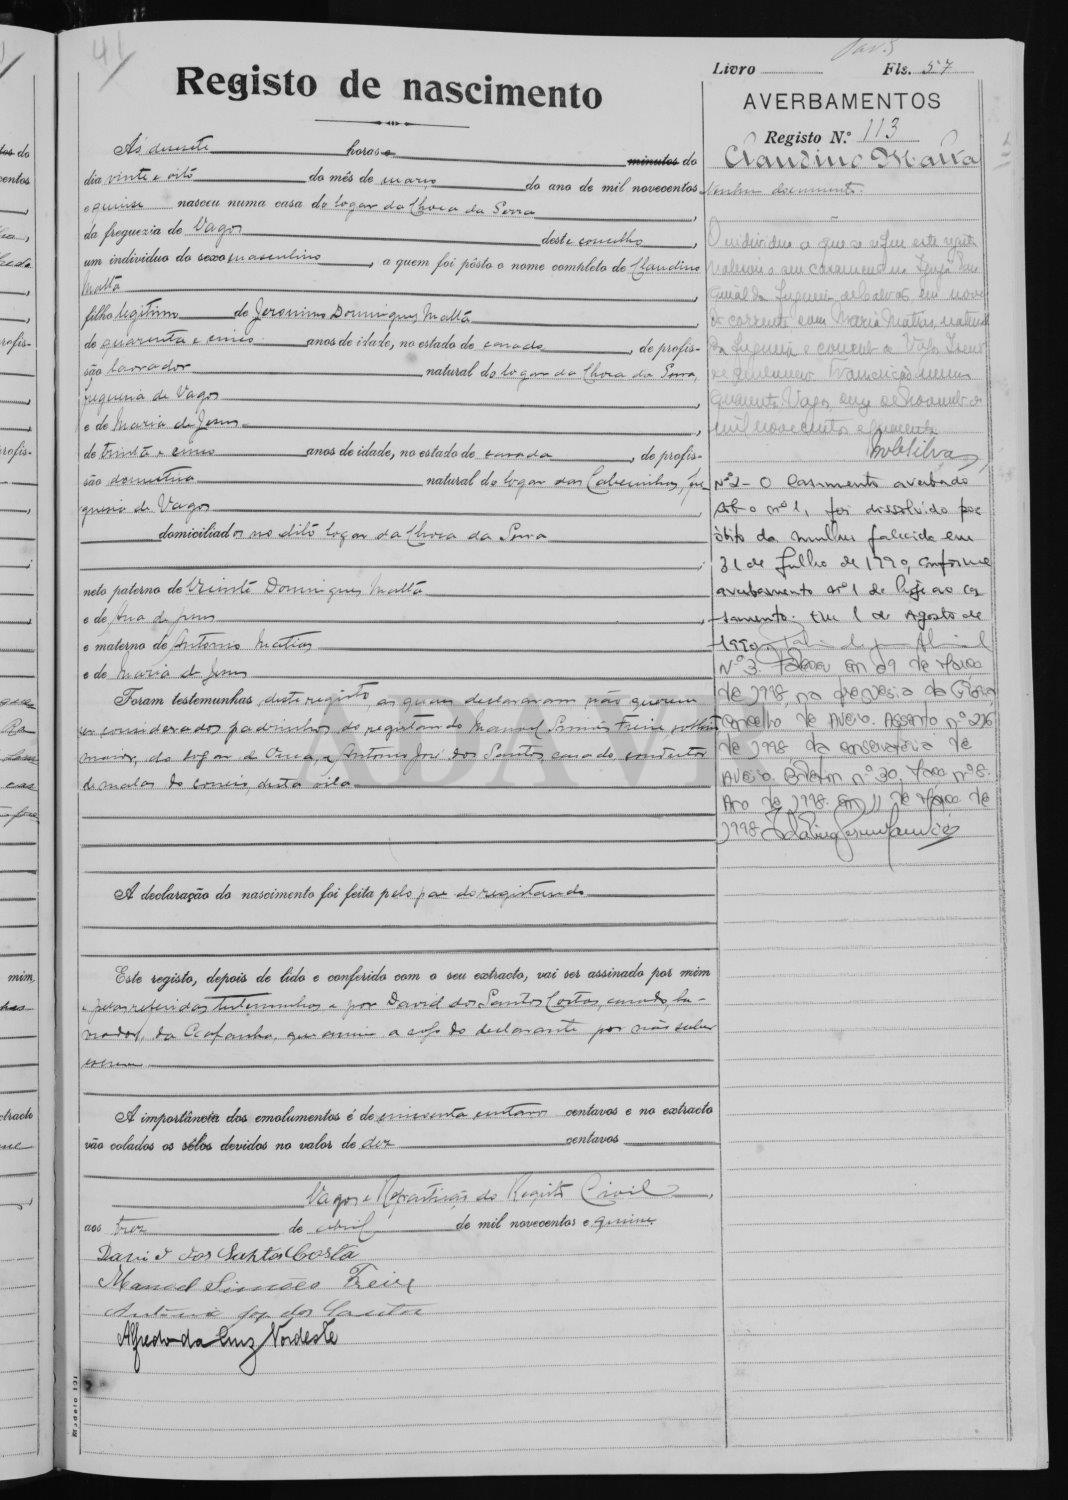 41
Registo de nascimento
Ás dezesete horas e minutos do
dia vinte e oito do mês de março do ano de mil novecentos
e quinze nasceu numa casa do logar da Choca da Serra,
da freguezia de Vagos deste concelho,
um individuo do sexo masculino, a quem foi pôsto o nome completo de Claudino
Mattá
filho legitimo de Jeronimo Domingues Mattá
de quarenta e cinco anos de idade, no estado de casado, de profis-
são lavrador natural do logar da Choca da Serra,
freguesia de Vagos,
e de Maria de Jesus,
de trinta e cinco anos de idade, no estado de casada, de profis-
são domestica natural do logar das Cabecinhas, fre-
guesia de Vagos,
domiciliados no dito logar da Choca da Serra
neto paterno de Vicente Domingues Mattá
e de Ana de Jesus,
e materno de Antonio Matias
e de Maria de Jesus
Foram testemunhas deste registo, as quaes declararam não querem
ser considerados padrinhos do registando Manuel Simões Freire, solteiro
maior, do logar de, e Antonio José dos Santos, casado, condutor
de malas do correio, desta vila
A declaração do nascimento foi feita pelo pae do registando
Este registo, depois de lido e conferido com o seu extracto, vai ser assinado por mim
e pelas referidas testemunhas e por David dos Santos Costa, casado, la-
vrador, da Gafanha, que assina a rogo do declarante por não saber
escrever
A importância dos emolumentos é de cincoenta centavos centavos e no extracto
vão colados os sêlos devidos no valor de dez centavos
Vagos e Repartição do Registo Civil,
aos trez de abril de mil novecentos e quinze
David dos Santos Costa
Manoel Simões Freire
António José dos Santos
Alfredo da Cruz Nordeste
Modelo 131
Livro Fls. 57
AVERBAMENTOS
Registo N.º 113
Claudino Matta
Nenhum documento.
O individuo a que se refere este registo
realisou o seu casamento na Igreja Paro-
quial da freguesia de Calvão, em nove
do corrente com Maria Matias, natural
da freguesia e concelho de Vagos.
transcrição numero
quarenta. Vagos, onze de Novembro de
mil novecentos e quarenta
Nº 2 - O Casamento averbado
sob o nº 1, foi dissolvido por
óbito da mulher falecida em
31 de Julho de 1990, conforme
averbamento nº 1 de hoje ao ca-
samento. Em 1 de Agosto de
1990.
Nº 3. Faleceu em 09 de Março
de 1998, na freguesia da Glória,
Concelho de Aveiro. Assento nº 226
de 1998 da Conservatória de
Aveiro. Boletim nº 30, Maço nº 8.
Ano de 1998. Em 11 de Março de
1998
ADAVR